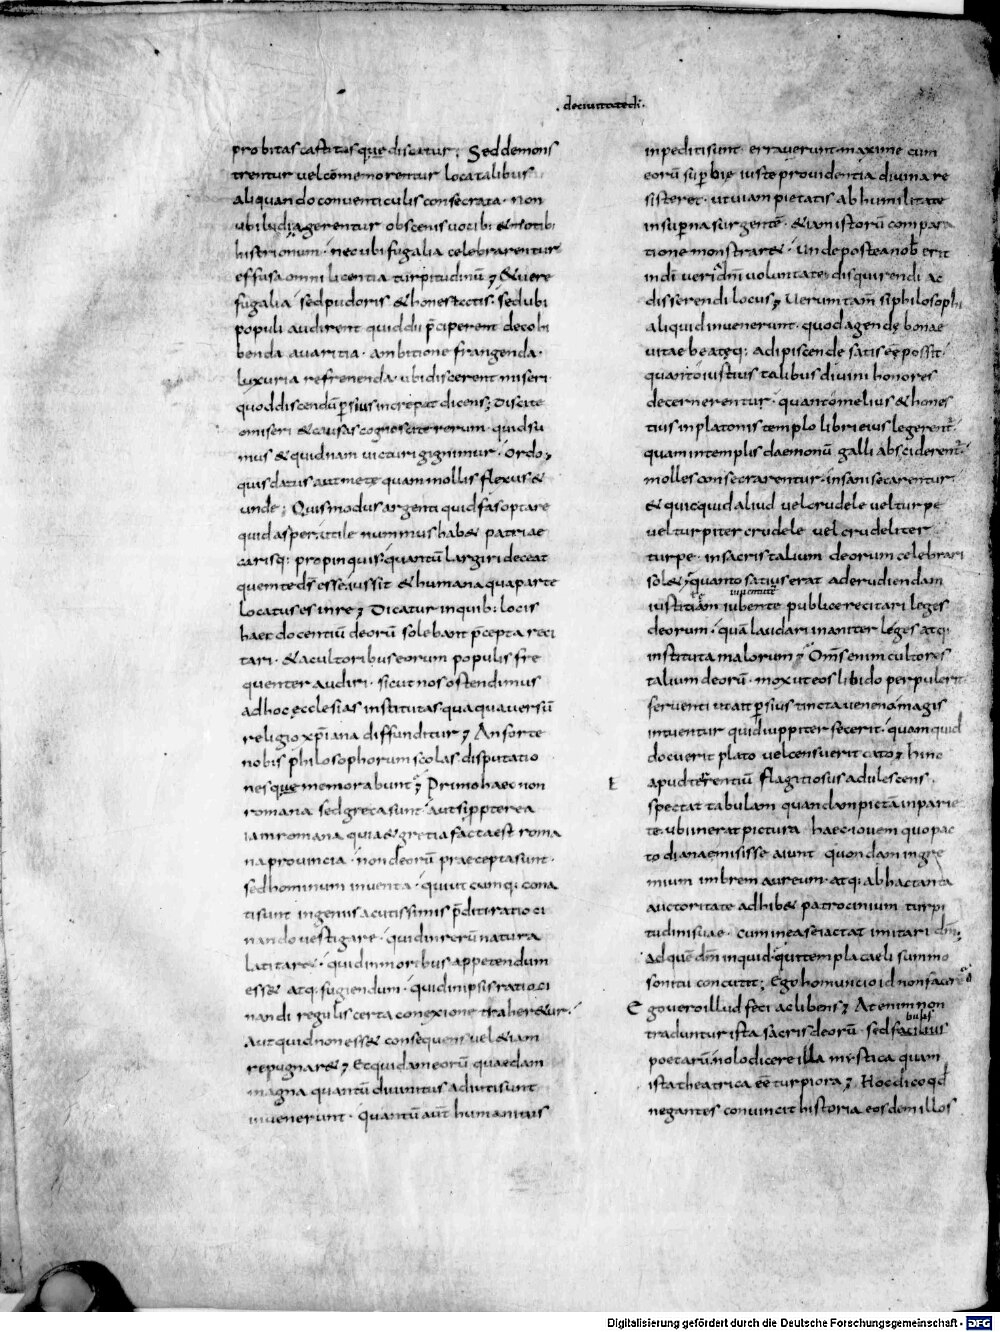 de ciuitate di
probitas castitasque discatur; Sed demons
trentur uel cōmemorentur loca talibus
aliquando conuenticulis consecrata · non
ubi ludi agerentur obscenis uocib; & motib;
histrionum · nec ubi fugalia celebrarentur
effusa omni licentia turpitudinū; & uere
fugalia sed pudoris & honestatis · sed ubi
populi audirent quid dii p̄ciperent de cohi
benda auaritia · ambitione frangenda ·
luxuria refrenenda · ubi discerent miseri
quod discendū persius increpat dicens; Discite
o miseri & causas cognoscite rerum · quid su
mus & quidnam uicturi gignimur · Ordo
quis datus aut mete quam mollis flexus &
unde; Quis modus argenti quid fas optare
quid asper utile nummus hab& patriae
carisq; propinquis quantū largiri deceat
quem te ds̄ esse iussit & humana qua parte
locatus es in re; Dicatur in quib; locis
haec docentiū deorū solebant p̄cepta reci
tari · & a cultoribus eorum populis fre
quenter audiri · sicut nos ostendimus
ad hoc ecclesias institutas quaquauersū
religio xp̄iana diffunditur; An forte
nobis philosophorum scolas disputatio
nesque memorabunt; Primo haec non
romana sed greca sunt · aut si ppterea
iam romana quia & gretia facta est roma
na prouincia · non deorū praecepta sunt ·
sed hominum inuenta · qui utcumq; cona
ti sunt ingeniis acutissimis p̄diti ratioci
nando uestigare · quid in rerū natura
latitar& · quid in moribus appetendum
ess& atq; fugiendum · quid in ipsis ratioci
nandi regulis certa conexione traher&ur ·
Aut quid non ess& consequens uel &iam
repugnar&; Et quidam eorū quaedam
magna quantū diuinitus adiuti sunt
inuenerunt · quantū aut̄ humanitus
inpediti sunt errauerunt maxime cum
eorū superbię iuste prouidentia diuina re
sisteret · ut uiam pietatis ab humilitate
in superna surgentē · &iam istorū compara
tione monstrar& · Unde postea nob erit
in dī ueri dn̄i uoluntate disquirendi ac
disserendi locus; Uerum tam̄ si philosophi
aliquid inuenerunt · quod agendę bonae
uitae beateq; adipiscende satis eē possit
quanto iustius talibus diuini honores
decernerentur · quanto melius & hones
tius in platonis templo libri eius legerent̄
quam in templis daemonū galli absciderent̄
molles consecrarentur · insani secarentur
& quicquid aliud uel crudele uel turpe
uel turpiter crudele uel crudeliter
turpe · in sacris talium deorum celebrari
sol&; quanto satius erat ad erudiendam
iuuentutē
iustitiam iubente publice recitari leges
deorum · quā laudari inaniter leges atq;
instituta malorum; Om̄s enim cultores
talium deorū · mox ut eos libido perpulerit
feruenti ut ait persius tincta ueneno magis
intuentur quid iuppiter fecerit · quam quid
docuerit plato uel censuerit cato; hinc
apud terentiū flagitiosus adulescens ·
spectat tabulam quandam pictā in parie
te · ubi inerat pictura haec · iouem quo pac
to dianae misisse aiunt quondam in gre
mium imbrem aureum · atq; ab hac tanta
auctoritate adhib& patrocinium turpi
tudini suae · cum in ea se iactat imitari dm̄;
ad quē dm̄ inquid qui templa caeli summo
sonitu concutit; Ego homuncio id non facerē
Ego uero illud feci ac libens; At enim non
traduntur ista sacris deorū · sed fabulis
poetarū; nolo dicere illa mystica quam
ista theatrica eē turpiora; Hoc dico qd̄
negantes conuincit historia eos dem illos
Digitalisierung gefördert durch die Deutsche Forschungsgemeinschaft - DFG